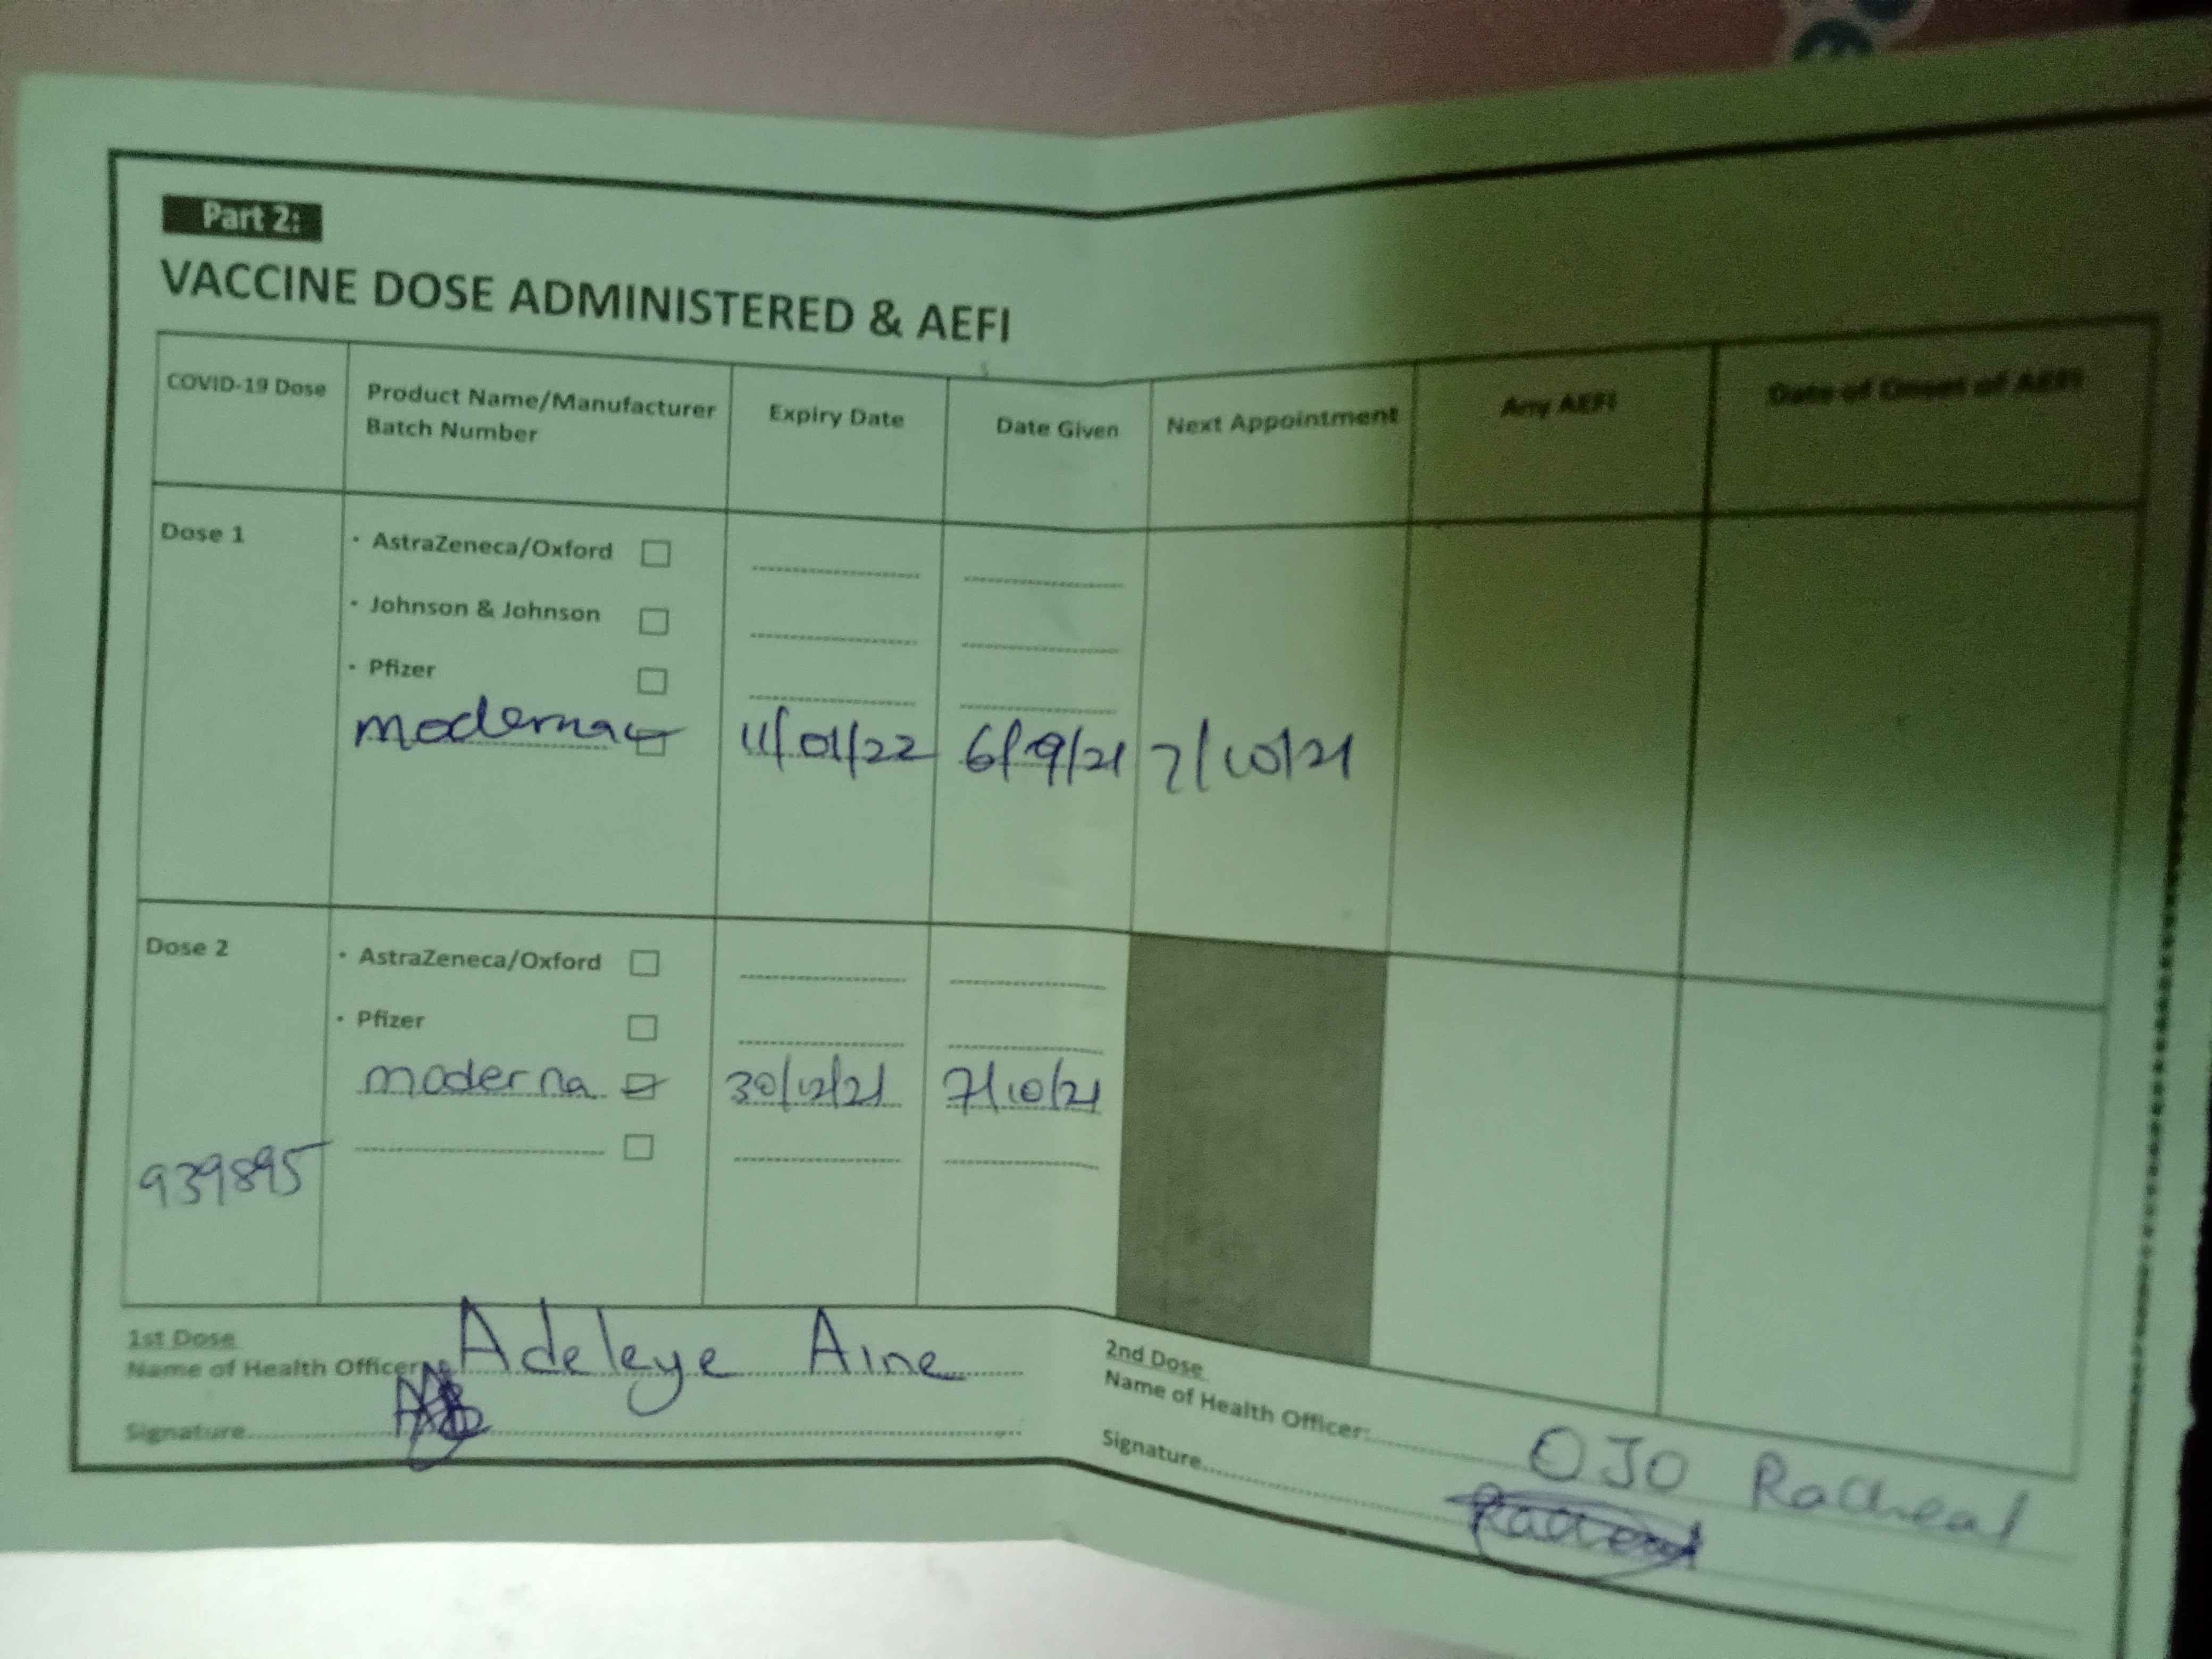 Part 2:
VACCINE DOSE ADMINISTERED & AEFI
COVID-19 Dose
Product Name/Manufacturer
Batch Number
Expiry Date
Date Given
Next Appointment
Any AEFI
Date of Onset of AEFI
Dose 1
· AstraZeneca/Oxford
· Johnson & Johnson
· Pfizer
moderna 11/01/22 6/9/21 7/10/21
Dose 2
· AstraZeneca/Oxford
· Pfizer
moderna 30/12/21 7/10/21
939895
1st Dose
Name of Health Officer: Adeleye Aine
Signature
2nd Dose
Name of Health Officer: OJO Racheal
Signature Racheal